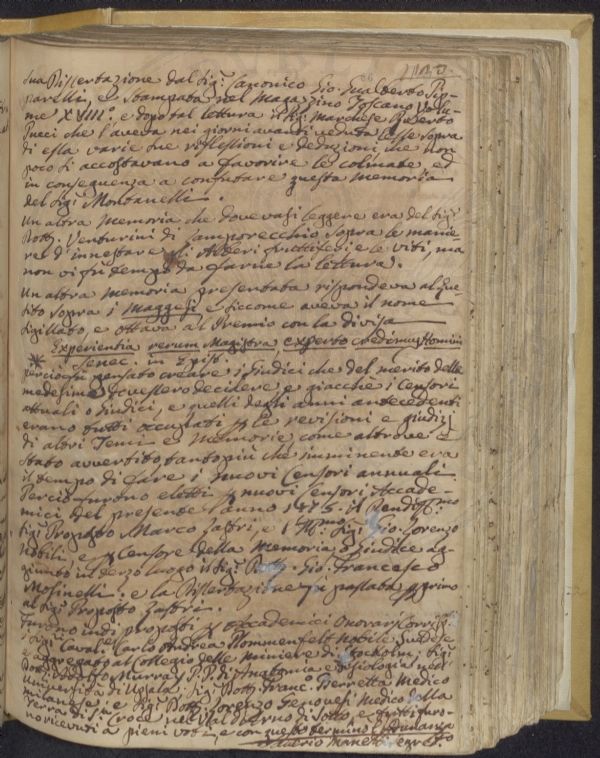 sua Dissertazione dal Sig.r Canonico Gio. Gualberto Pip-
parelli, e stampata nel Magazzino Toscano Volu-
me XVIII°, e dopo tal lettura il Sig.r Marchese Roberto
Pucci che l'aveva nei giorni avanti veduta lesse sopra
di essa varie sue reflessioni e deduzioni, che non
poco si accostavano a favorire le colmate ed
in conseguenza a confutare questa memoria
del Sig.r Montanelli.
Un altra memoria che dovevasi leggere era del Sig.r
Dott.r Venturini di Lamporecchio sopra le manie-
re d'innestare gli Alberi fruttiferi e le viti, ma
non vi fu tempo da farne la lettura.
Un altra memoria presentata rispondeva al Que-
sito sopra i Maggesi e siccome aveva il nome
sigillato, e ottava al Premio con la divisa
Experientia rerum Magistra, experto credimus Homini
* Senec. in Epist.
perciò fu pensato creare i Giudici che del merito delle
medesime dovessero decidere, e giacchè i Censori
attuali o Giudici, e quelli degli anni antecedenti
erano tutti occupati p le revisioni e giudizj
di altri Temi e Memorie, come altrove è
stato avvertito tanto più che imminente era
il tempo di fare i nuovi Censori annuali.
Perciò furono eletti p nuovi Censori Accade-
mici del presente anno 1775. il Rendiss.mo
Sig.r Proposto Marco Lastri e l'Ill.mo Sig.r Gio. Lorenzo
Nobili e p Censore della Memoria o Giudice ag-
giunto in terzo luogo il Sig.r Dott.r Gio. Francesco
Mosinelli. e la Dissertazione fu passata p primo
al Sig.r Proposto Lastri.
Furono indi proposti p Accademici Onorarj Corrisp.ti
i Sig.ri Caval. Carlo Andrea Plommenfelt Nobile Svedese
e aggregato al Collegio delle miniere di Stocholm, Sig.r
Dott. Adolfo Murray P. P. di Anatomia e Fisiologia nell'
Università di Upsala, Sig.r Dott. Franc.o Berretta Medico
milanese, e Sig.r Dott. Lorenzo Genovesi Medico della
Terra di S.ta Croce nel Valdarno di Sotto, e tutti furo-
no ricevuti a pieni voti, e con questo terminò l'Adunanza
Saverio Manetti Segr.o